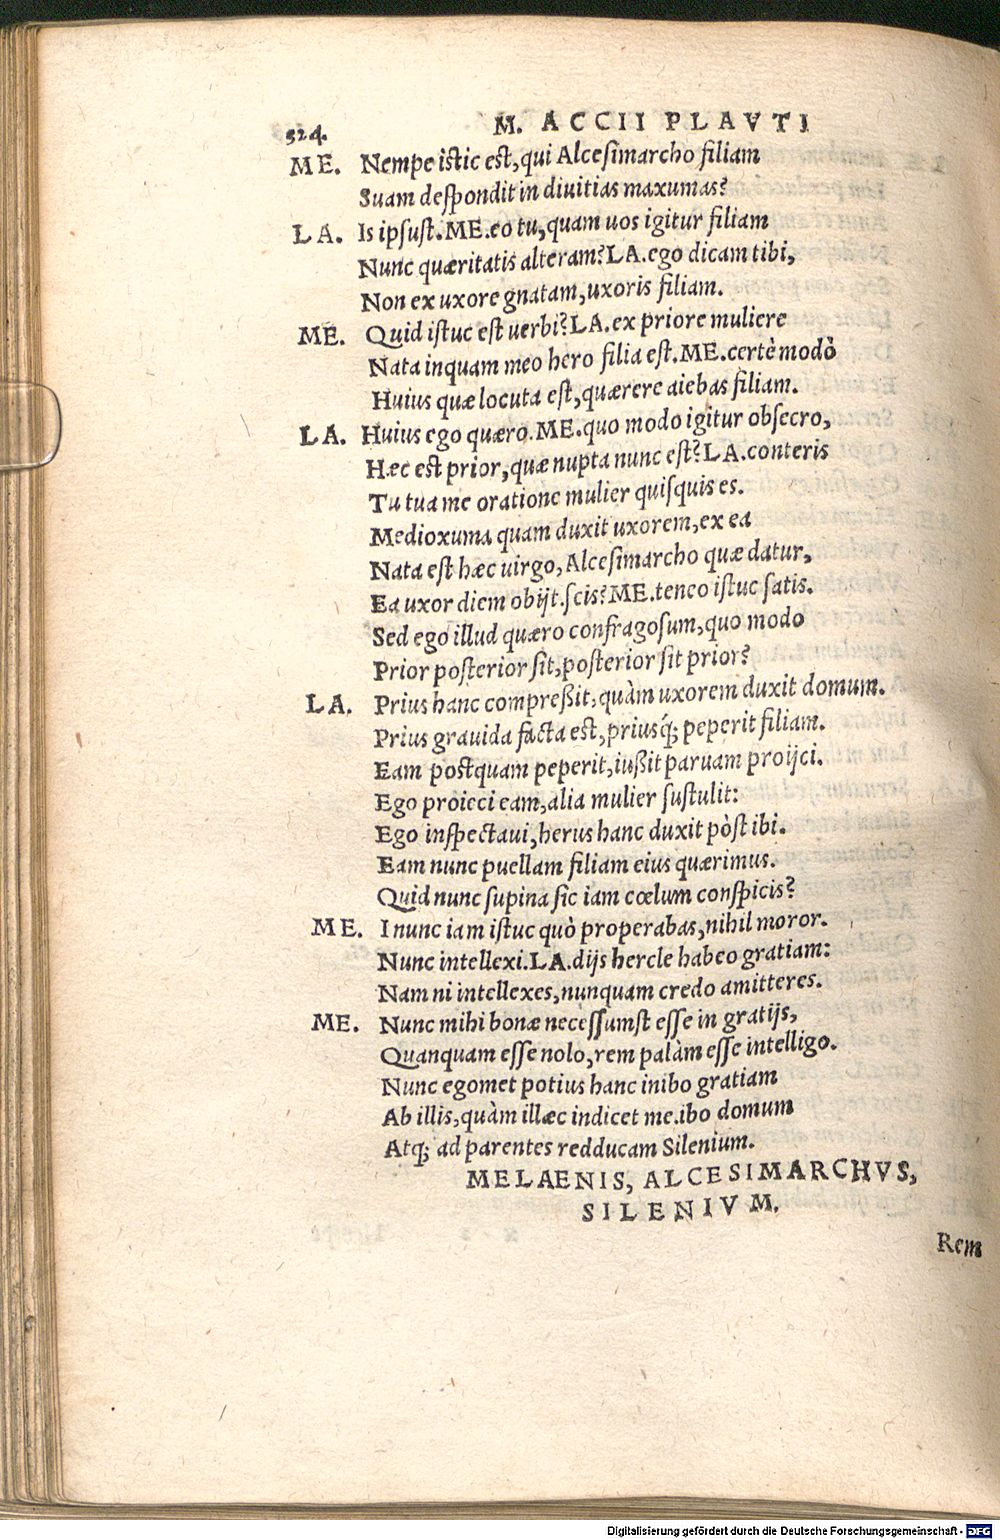 524.
M. ACCII PLAVTI
ME. Nempe istic est, qui Alcesimarcho filiam
Suam despondit in diuitias maxumas?
LA. Is ipsust. ME. eo tu, quam uos igitur filiam
Nunc quæritatis alteram? LA. ego dicam tibi,
Non ex uxore gnatam, uxoris filiam.
ME. Quid istuc est uerbi? LA. ex priore muliere
Nata inquam meo hero filia est. ME. certè modò
Huius quæ locuta est, quærere aiebas filiam.
LA. Huius ego quæro. ME. quo modo igitur obsecro,
Hæc est prior, quæ nupta nunc est? LA. conteris
Tu tua me oratione mulier quisquis es.
Medioxuma quam duxit uxorem, ex ea
Nata est hæc uirgo, Alcesimarcho quæ datur,
Ea uxor diem obijt. scis? ME. teneo istuc satis.
Sed ego illud quæro confragosum, quo modo
Prior posterior sit, posterior sit prior?
LA. Prius hanc compreßit, quàm uxorem duxit domum.
Prius grauida facta est, priusq́; peperit filiam.
Eam postquam peperit, iußit paruam proijci.
Ego proieci eam, alia mulier sustulit:
Ego inspectaui, herus hanc duxit pòst ibi.
Eam nunc puellam filiam eius quærimus.
Quid nunc supina sic iam cœlum conspicis?
ME. I nunc iam istuc quò properabas, nihil moror.
Nunc intellexi. LA. dijs hercle habeo gratiam:
Nam ni intellexes, nunquam credo amitteres.
ME. Nunc mihi bonæ necessumst esse in gratijs,
Quanquam esse nolo, rem palàm esse intelligo.
Nunc egomet potius hanc inibo gratiam
Ab illis, quàm illæc indicet me. ibo domum
Atq; ad parentes redducam Silenium.
MELAENIS, ALCESIMARCHVS,
SILENIVM.
Rem
Digitalisierung gefördert durch die Deutsche Forschungsgemeinschaft - DFG